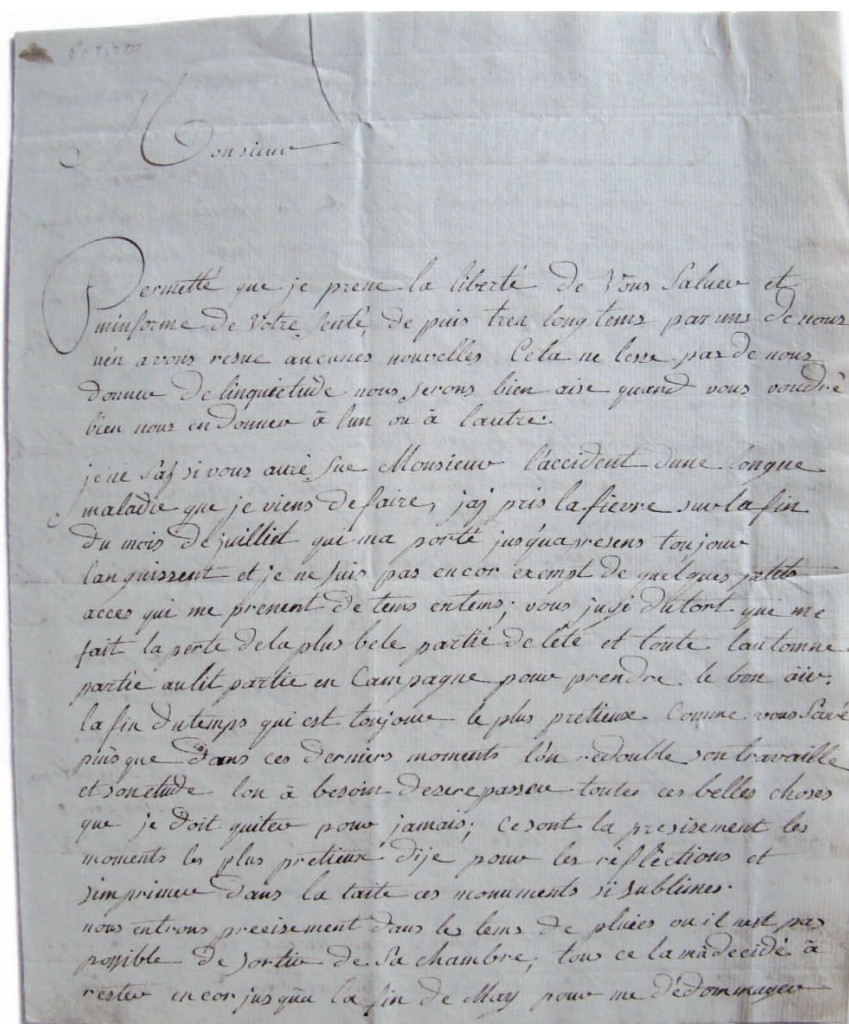 Monsieur
Permetté que je prene la liberté de Vous Saluer et
minforme de Votre senté, de puis tren long tems par uns de nous
nén avons resue aucunes nouvelles Cela ne lesse pas de nous
donner de linquietude nous serons bien aise quand vous voudré
bien nous en donner à lun ou à lautre.
je ne saj si vous auré sue Monsieur l'accident dune longue
maladie que je viens de faire, jaj pris la fievre sur la fin
du mois de juilliet qui ma porté jusqua presens toujour
languissent et je ne suis pas encor exempt de quelques petits
acces qui me prenent de tems entems; vous jugé du tort que me
fait la perte de la plus bele partie de l'été et toute lautomne
partie aulit partie en Campagne pour prendre le bon air.
la fin du temps qui est toujour le plus pretieux Comme vous Savé
puis que dans ces derniers moments lón redouble son travaille
et son etude lon à besoin de se repasser toutes ces belles choses
que je doit quiter pour jamais; ce sont la presisement les
moments les plus pretieux dije pour les réflections et
simprimer dans la taite ces monuments si sublimes.
nous entrons precisement dans le tems de pluies ou il nest pas
possible de sortir de sa chambre; tous ce la mà decidé à
rester encor jusqúa la fin de May pour me dédommager